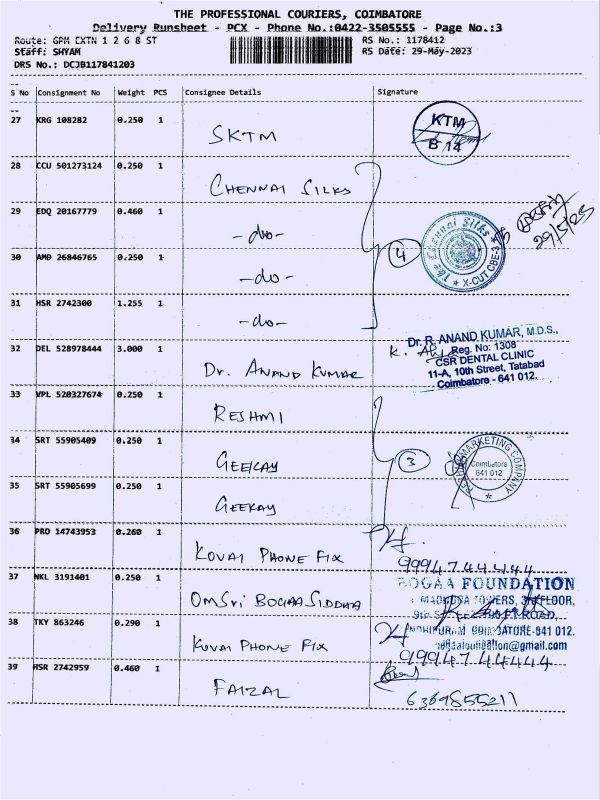 THE PROFESSIONAL COURIERS, COIMBATORE
Delivery Runsheet - PCX - Phone No.:0422-3505555 - Page No.:3
Route: GPM EXTN 1 2 6 8 ST RS No.: 1178412
Staff: SHYAM RS Date: 29-May-2023
DRS No.: DCJB117841203
S No Consignment No Weight PCS Consignee Details Signature
27 KRG 108282 0.250 1 SKTM KTM B 14
28 CCU 501273124 0.250 1 CHENNAI SILKS
29 EDQ 20167779 0.460 1 -do- The Chennai Silks X-CUT CBE-3 29/5/23
30 AMD 26846765 0.250 1 -do- 4
31 HSR 2742300 1.255 1 -do-
32 DEL 528978444 3.000 1 Dr. ANAND KUMAR
Dr. R. ANAND KUMAR, M.D.S.,
Reg. No: 1308
CSR DENTAL CLINIC
11-A, 10th Street, Tatabad
Coimbatore - 641 012.
33 VPL 520327674 0.250 1 RESHMI
34 SRT 55905409 0.250 1 GEEKAY 3 MARKETING COMPANY Coimbatore 641 012
35 SRT 55905699 0.250 1 GEEKAY
36 PRO 14743953 0.260 1 KOVAI PHONE FIX 9994744444
37 NKL 3191401 0.250 1 OMSri BOGAA SIDDHA
BOGAA FOUNDATION
TOWERS, FLOOR,
ROAD,
641 012.
@gmail.com
38 TKY 863246 0.290 1 KOVAI PHONE FIX 9994744444
39 HSR 2742959 0.460 1 FAIZAL 6369855211